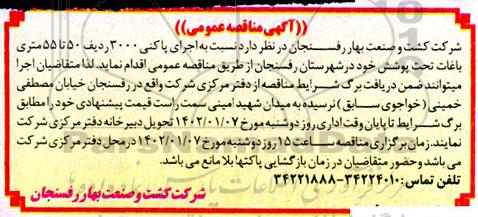 ((آگهی مناقصه عمومی))
شرکت کشت و صنعت بهار رفسنجان در نظر دارد نسبت به اجرای پاکنی ۳۰۰۰ ردیف ۵۰ تا ۵۵ متری
باغات تحت پوشش خود در شهرستان رفسنجان از طریق مناقصه عمومی اقدام نماید. لذا متقاضیان اجرا
میتوانند ضمن دریافت برگ شرایط مناقصه از دفتر مرکزی شرکت واقع در رفسنجان خیابان مصطفی
خمینی (خواجوی سابق) نرسیده به میدان شهید امینی سمت راست قیمت پیشنهادی خود را مطابق
برگ شرایط تا پایان وقت اداری روز دوشنبه مورخ ۱۴۰۲/۰۱/۰۷ تحویل دبیرخانه دفتر مرکزی شرکت
نمایند. زمان برگزاری مناقصه ساعت ۱۵ روز دوشنبه مورخ ۱۴۰۲/۰۱/۰۷ در محل دفتر مرکزی شرکت
می باشد وحضور متقاضیان در زمان بازگشایی پاکتها بلامانع می باشد.
تلفن تماس: ۳۴۲۲۴۰۱۰-۳۴۲۲۱۸۸۸
شرکت کشت و صنعت بهار رفسنجان